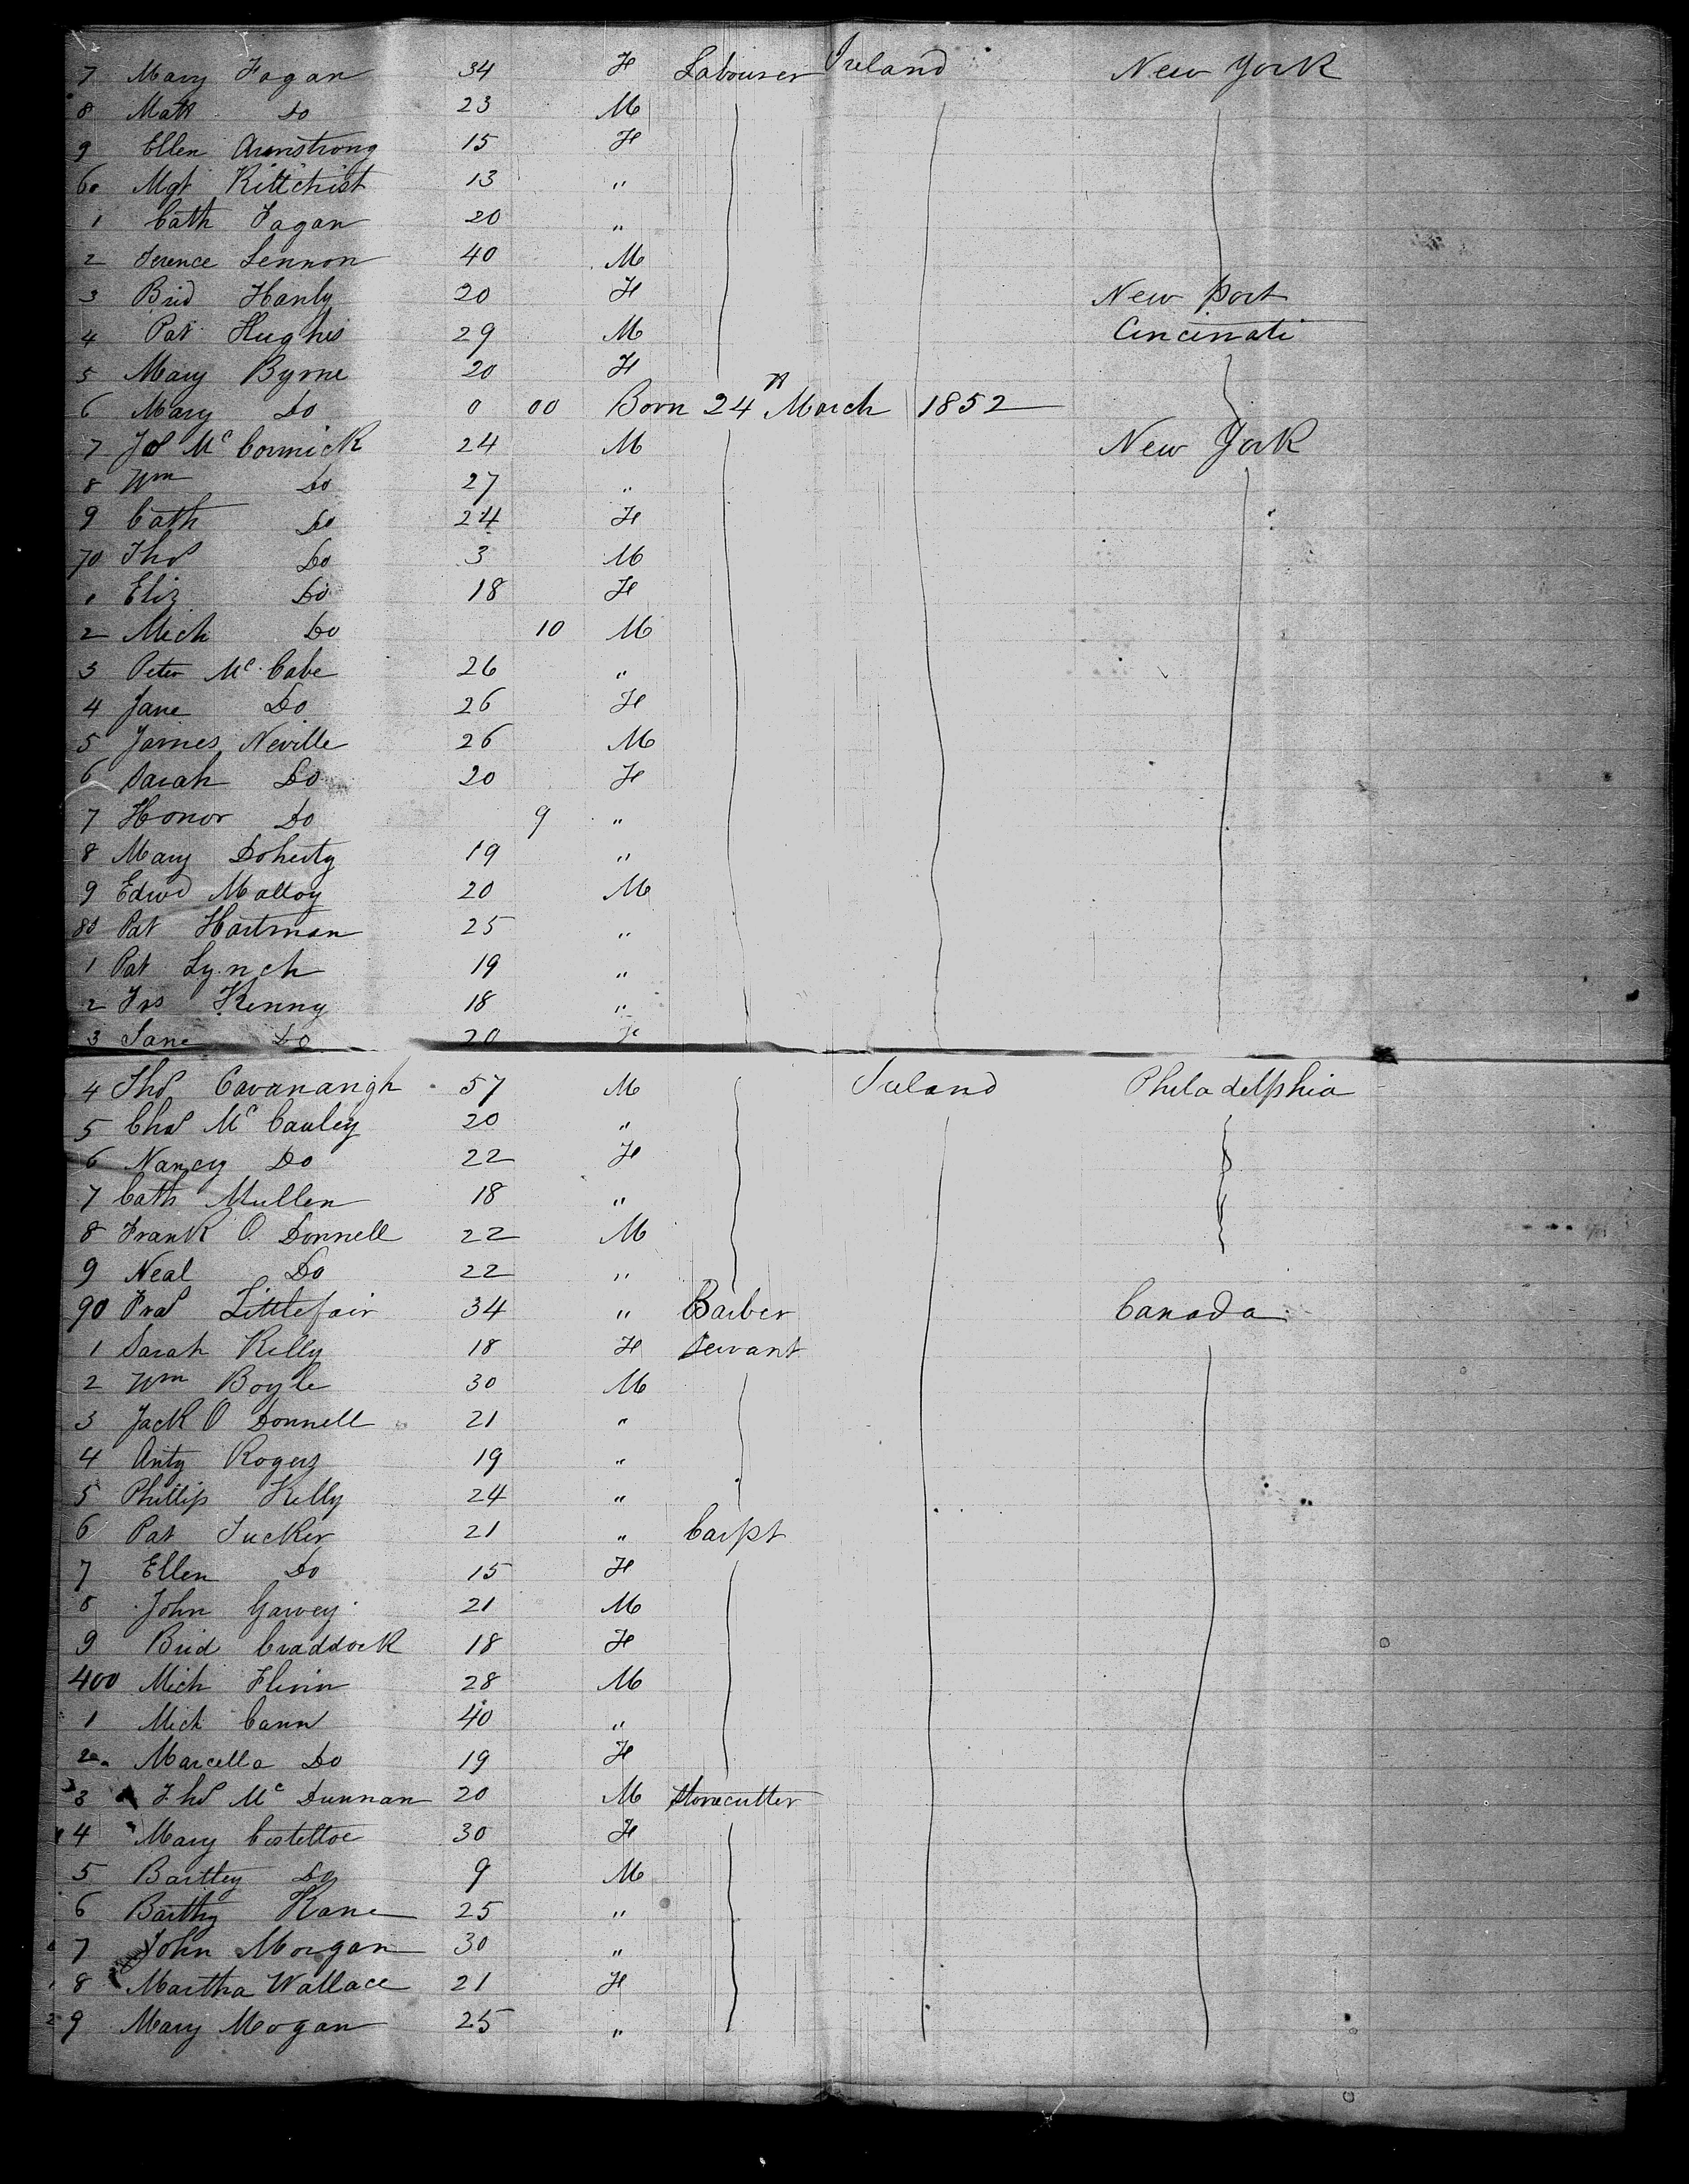 7 Mary Fagan 34 F Labourer Ireland New York
8 Matt Do 23 M
9 Ellen Armstrong 15 F
60 Mgt Kittchist 13 "
1 Cath Fagan 20 "
2 Terence Lennon 40 M
3 Brid Hanly 20 F New Port
4 Pat Hughes 29 M Cincinati
5 Mary Byrne 20 F
6 Mary Do 0 00 Born 24th March 1852
7 Jos Mc Cormick 24 M New York
8 Wm Do 27 "
9 Cath Do 24 F
70 Thos Do 3 M
1 Eliz Do 18 F
2 Mich Do 10 M
3 Peter Mc Cabe 26 "
4 Jane Do 26 F
5 James Neville 26 M
6 Sarah Do 20 F
7 Honor Do 9 "
8 Mary Doherty 19 "
9 Edwd Malloy 20 M
80 Pat Hartman 25 "
1 Pat Lynch 19 "
2 Frs Kenny 18 "
3 Jane Do 20 F
4 Thos Cavanangh 57 M Ireland Philadelphia
5 Chas Mc Cauley 20 "
6 Nancy Do 22 F
7 Cath Mullen 18 "
8 Frank O Donnell 22 M
9 Neal Do 22 "
90 Fras Littlefair 34 " Barber Canada
1 Sarah Kelly 18 F Servant
2 Wm Boyle 30 M
3 Jack O Donnell 21 "
4 Anty Rogers 19 "
5 Phillip Kelly 24 "
6 Pat Tucker 21 " Carpt
7 Ellen Do 15 F
8 John Garvey 21 M
9 Brid Craddock 18 F
400 Mich Flinn 28 M
1 Mich Cann 40 "
2 Marcella Do 19 F
3 Thos Mc Dunnan 20 M Stonecutter
4 Mary Costelloe 30 F
5 Bartley Do 9 M
6 Barthy Kane 25 "
7 John Morgan 30 "
8 Martha Wallace 21 F
9 Mary Mogan 25 "